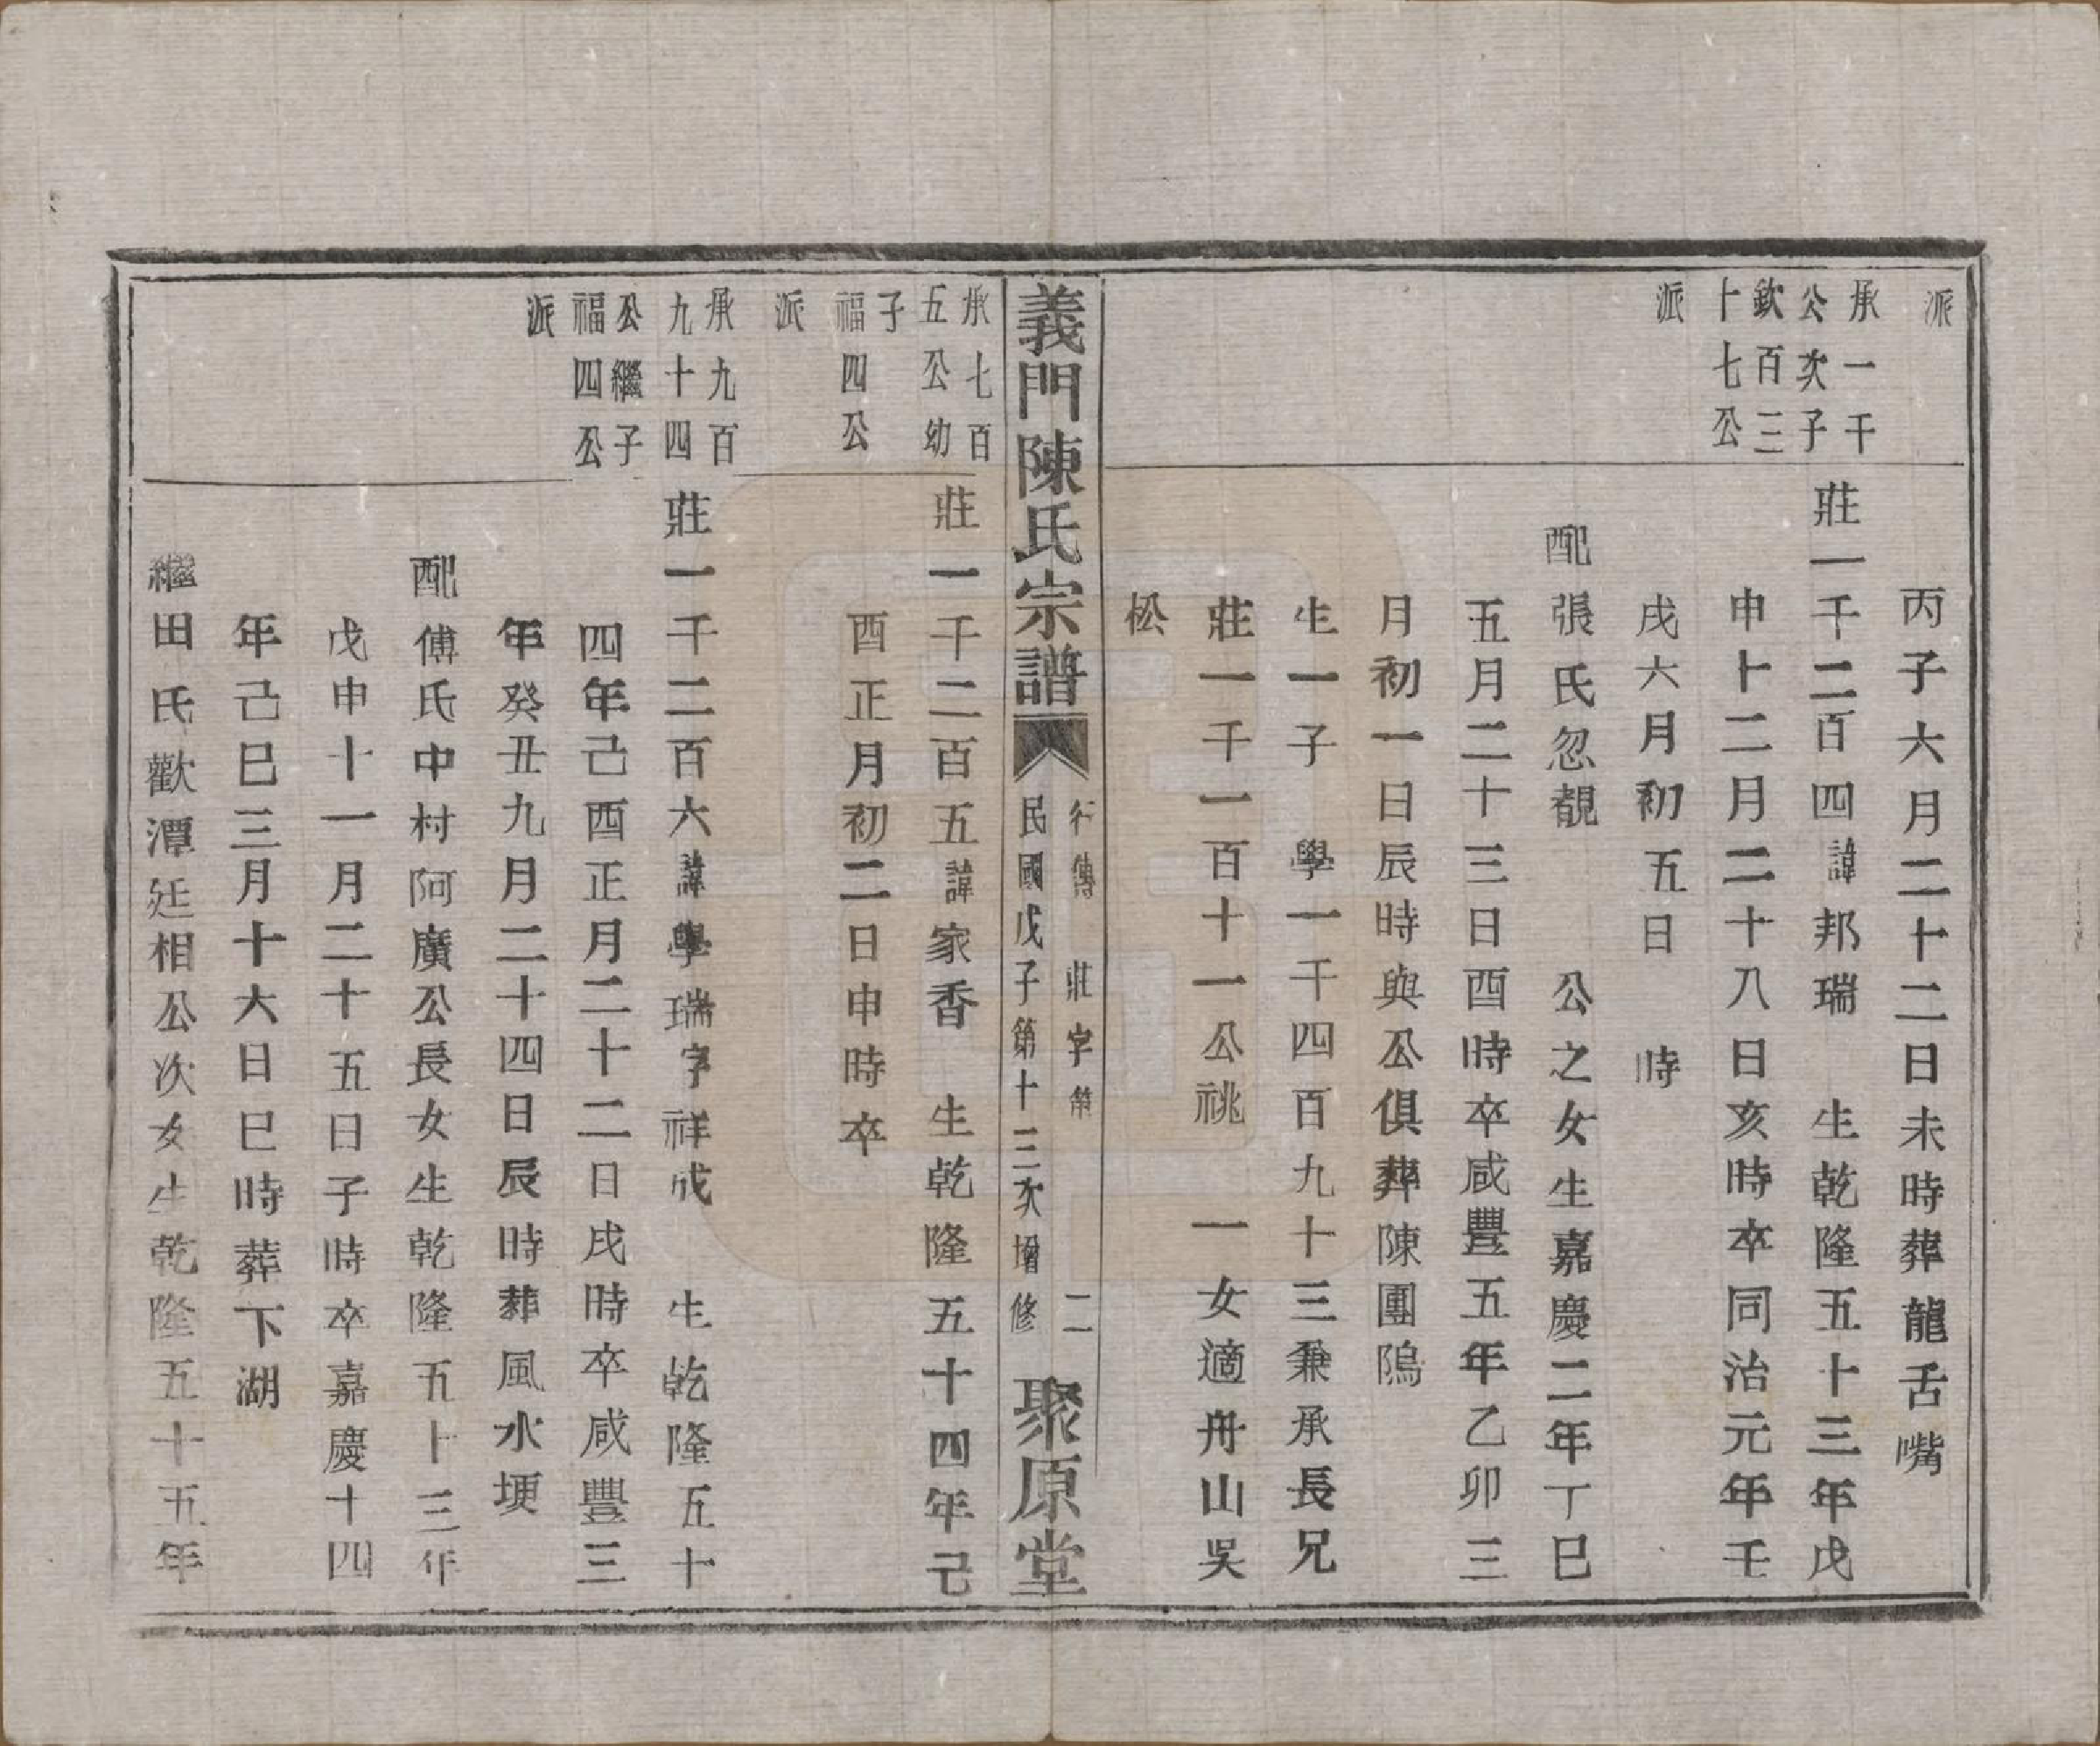 派
丙子六月二十二日未時葬龍舌嘴
承一千
公次子
欽百三
十七公
派
莊一千二百四諱邦瑞 生乾隆五十三年戊
申十二月二十八日亥時卒同治元年壬
戌六月初五日 時
配張氏忽覩 公之女生嘉慶二年丁巳
五月二十三日酉時卒咸豐五年乙卯三
月初一日辰時與公俱葬陳團隖
生一子 學一千四百九十三兼承長兄
莊一千一百十一公祧 一女適舟山吳
松
義門陳氏宗譜
行傳 莊字第 二
民國戊子第十三次增修
聚原堂
承七百
五公幼
子
福四公
派
莊一千二百五諱家香 生乾隆五十四年己
酉正月初二日申時卒
承九百
九十四
公繼子
福四公
派
莊一千二百六諱學瑞字祥成 生乾隆五十
四年己酉正月二十二日戌時卒咸豐三
年癸丑九月二十四日辰時葬風水埂
配傅氏中村阿廣公長女生乾隆五十三年
戊申十一月二十五日子時卒嘉慶十四
年己巳三月十六日巳時葬下湖
繼田氏歡潭廷相公次女生乾隆五十五年